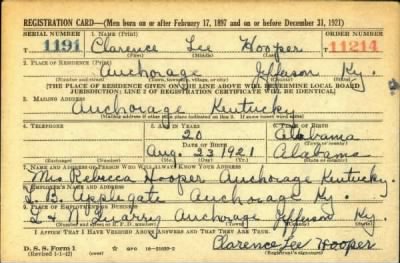 REGISTRATION CARD—(Men born on or after February 17, 1897 and on or before December 31, 1921)
SERIAL NUMBER 1. NAME (Print) ORDER NUMBER
T 1191 Clarence Lee Hooper T 11214
(First) (Middle) (Last)
2. PLACE OF RESIDENCE (Print)
Anchorage Jeffason Ky.
(Number and street) (Town, township, village, or city) (County) (State)
[THE PLACE OF RESIDENCE GIVEN ON THE LINE ABOVE WILL DETERMINE LOCAL BOARD
JURISDICTION; LINE 2 OF REGISTRATION CERTIFICATE WILL BE IDENTICAL]
3. MAILING ADDRESS
Anchorage Kentucky
(Mailing address if other than place indicated on line 2. If same insert word same)
4. TELEPHONE 5. AGE IN YEARS 6. PLACE OF BIRTH
20 Alabama
DATE OF BIRTH (Town or county)
Aug. 23 1921 Alabama
(Exchange) (Number) (Mo.) (Day) (Yr.) (State or country)
7. NAME AND ADDRESS OF PERSON WHO WILL ALWAYS KNOW YOUR ADDRESS
Mrs Rebecca Hooper Anchorage Kentucky.
8. EMPLOYER'S NAME AND ADDRESS
L. B. Applegate Anchorage Ky.
9. PLACE OF EMPLOYMENT OR BUSINESS
L & N Quarry Anchorage Jefferson Ky.
(Number and street or R. F. D. number) (Town) (County) (State)
I AFFIRM THAT I HAVE VERIFIED ABOVE ANSWERS AND THAT THEY ARE TRUE.
D. S. S. Form 1
(Revised 1-1-42) GPO Clarence Lee Hooper